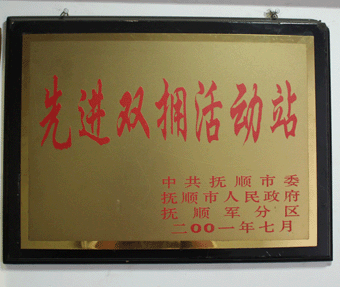 先进双拥活动站
中共抚顺市委
抚顺市人民政府
抚顺军分区
二00一年七月